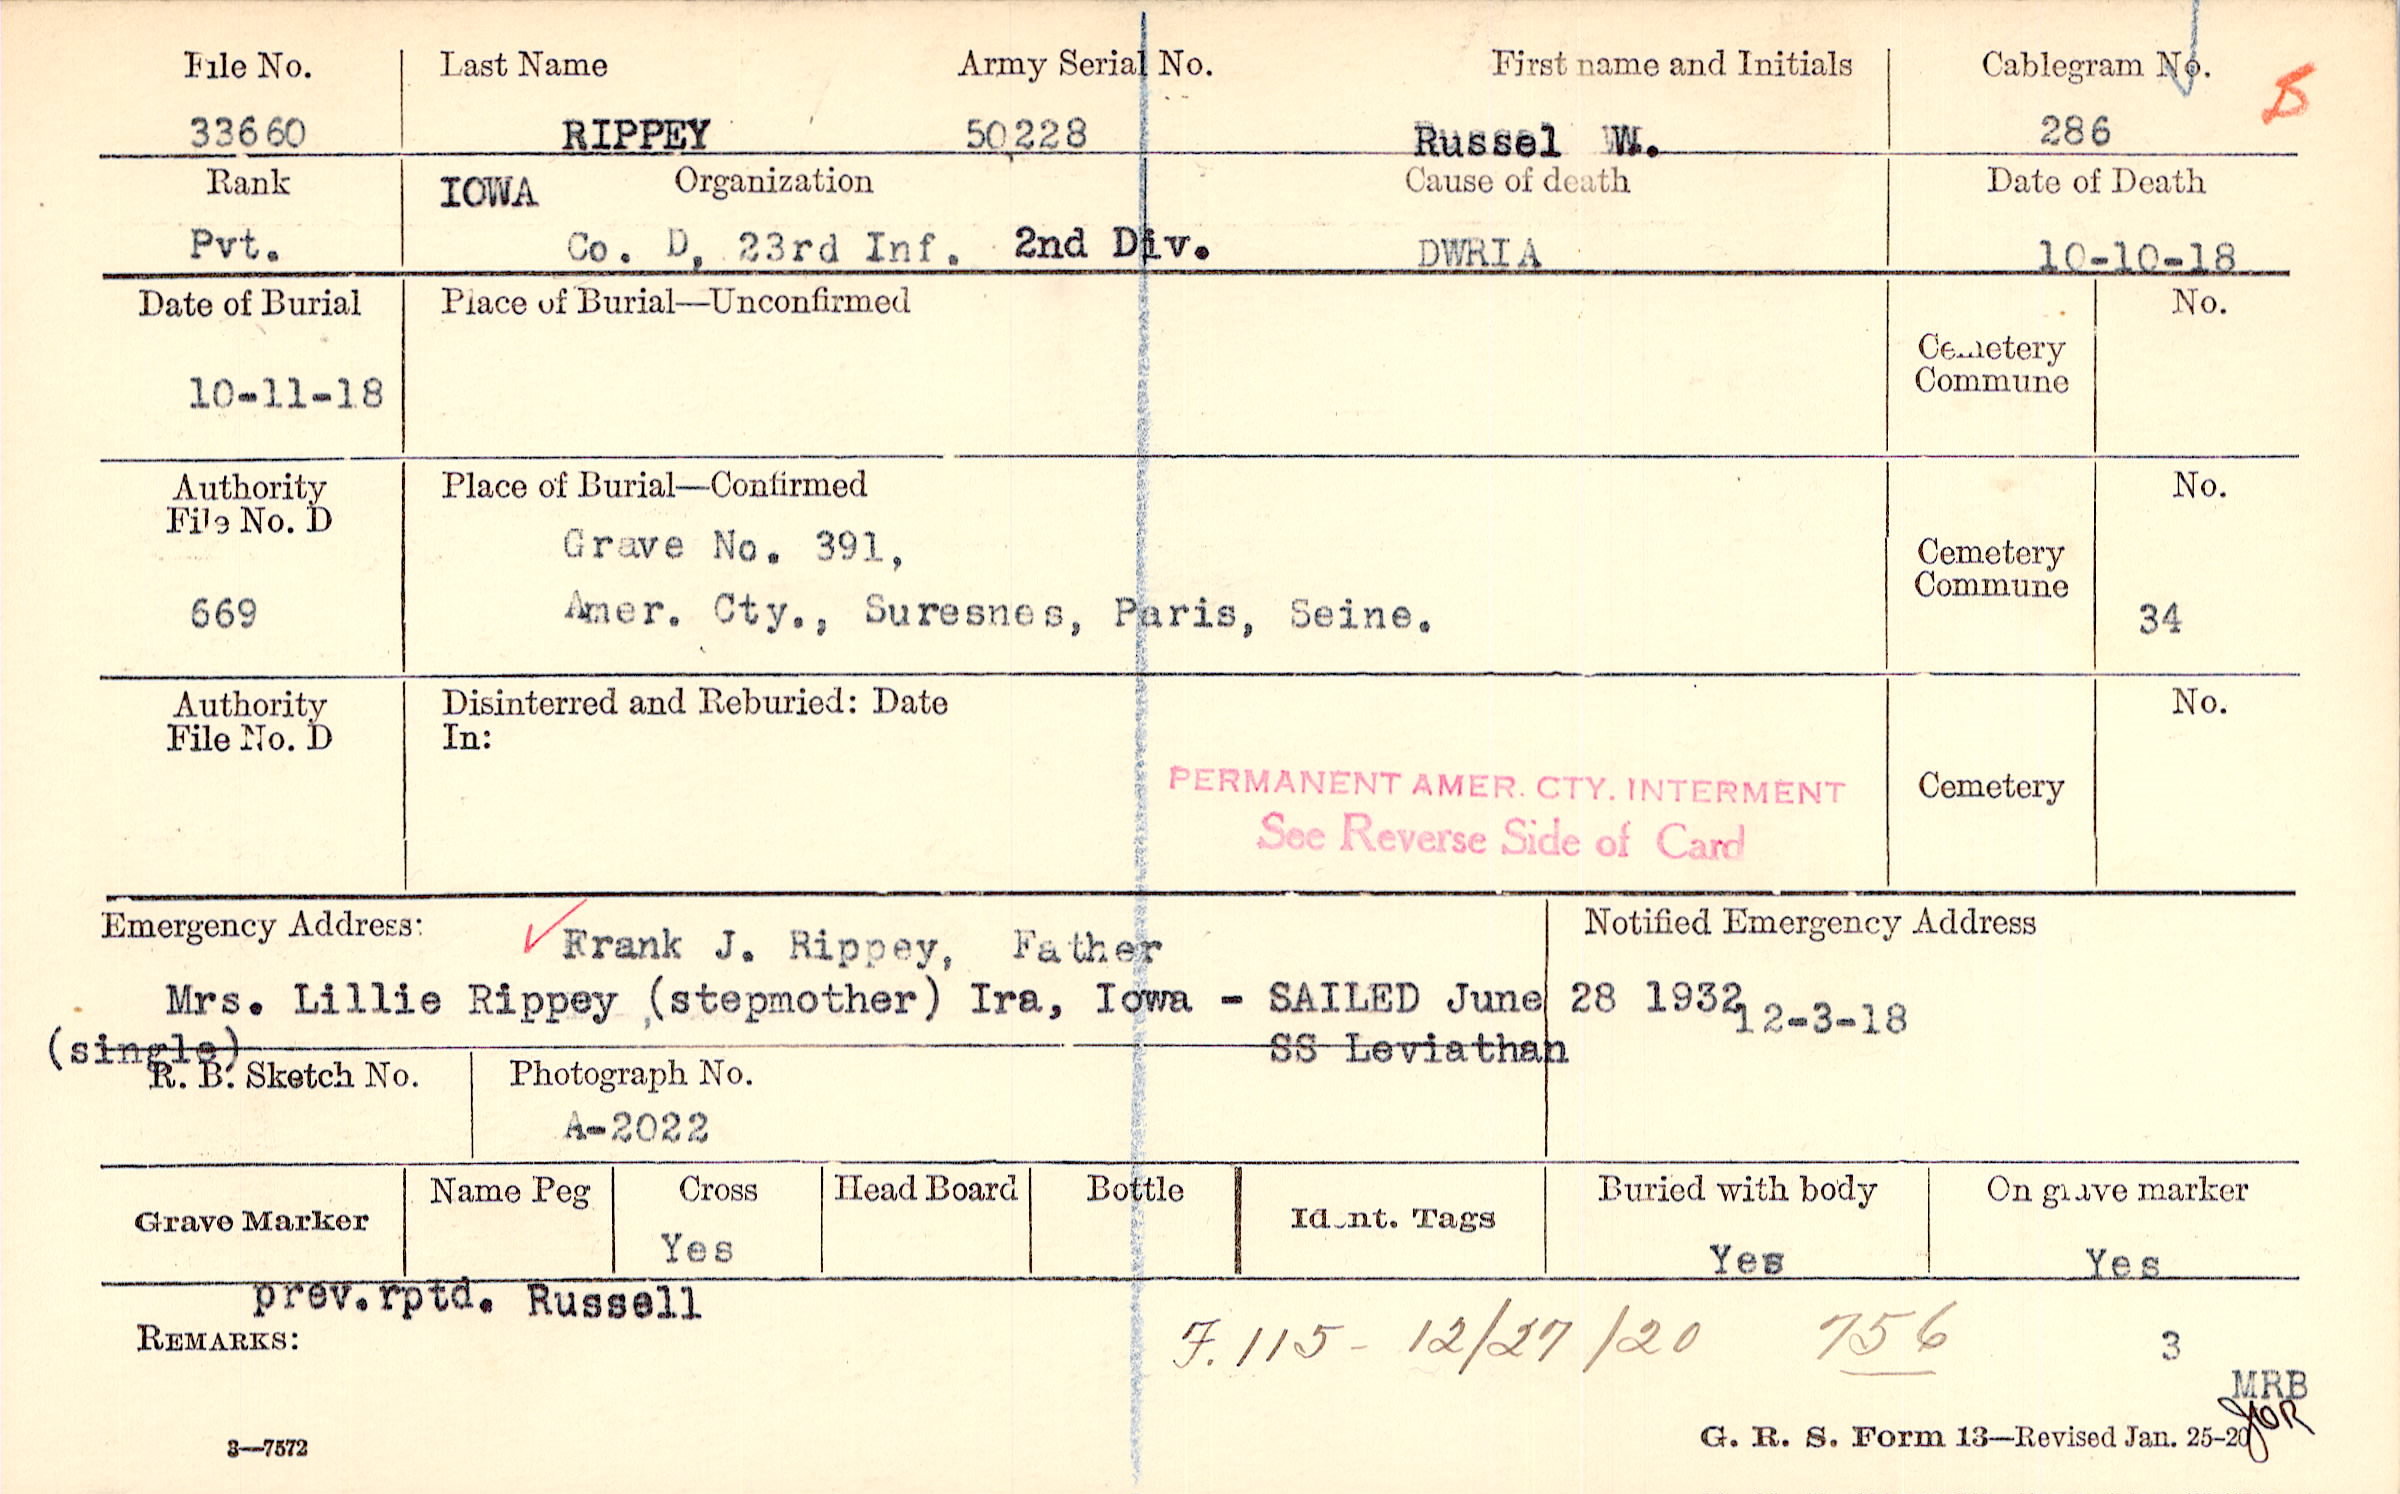 File No. Last Name Army Serial No. First name and Initials Cablegram No.
33660 RIPPEY 50,228 Russel W. 286
Rank IOWA Organization Cause of death Date of Death
Pvt. Co. D, 23rd Inf. 2nd Div. DWRIA 10-10-18
Date of Burial Place of Burial—Unconfirmed No.
Cemetery
Commune
10-11-18
Authority Place of Burial—Confirmed No.
File No. D
Grave No. 391,
Cemetery
Commune
669 Amer. Cty., Suresnes, Paris, Seine. 34
Authority Disinterred and Reburied: Date No.
File No. D In:
PERMANENT AMER. CTY. INTERMENT Cemetery
See Reverse Side of Card
Emergency Address: Notified Emergency Address
Frank J. Rippey, Father
Mrs. Lillie Rippey (stepmother) Ira, Iowa - SAILED June 28 1932
12-3-18
(single) SS Leviathan
R. B. Sketch No. Photograph No.
A-2022
Grave Marker Name Peg Cross Head Board Bottle Ident. Tags Buried with body On grave marker
Yes Yes Yes
prev.rptd. Russell
REMARKS: F. 115 - 12/27/20 756 3
MRB
3—7572 G. R. S. Form 13—Revised Jan. 25-20